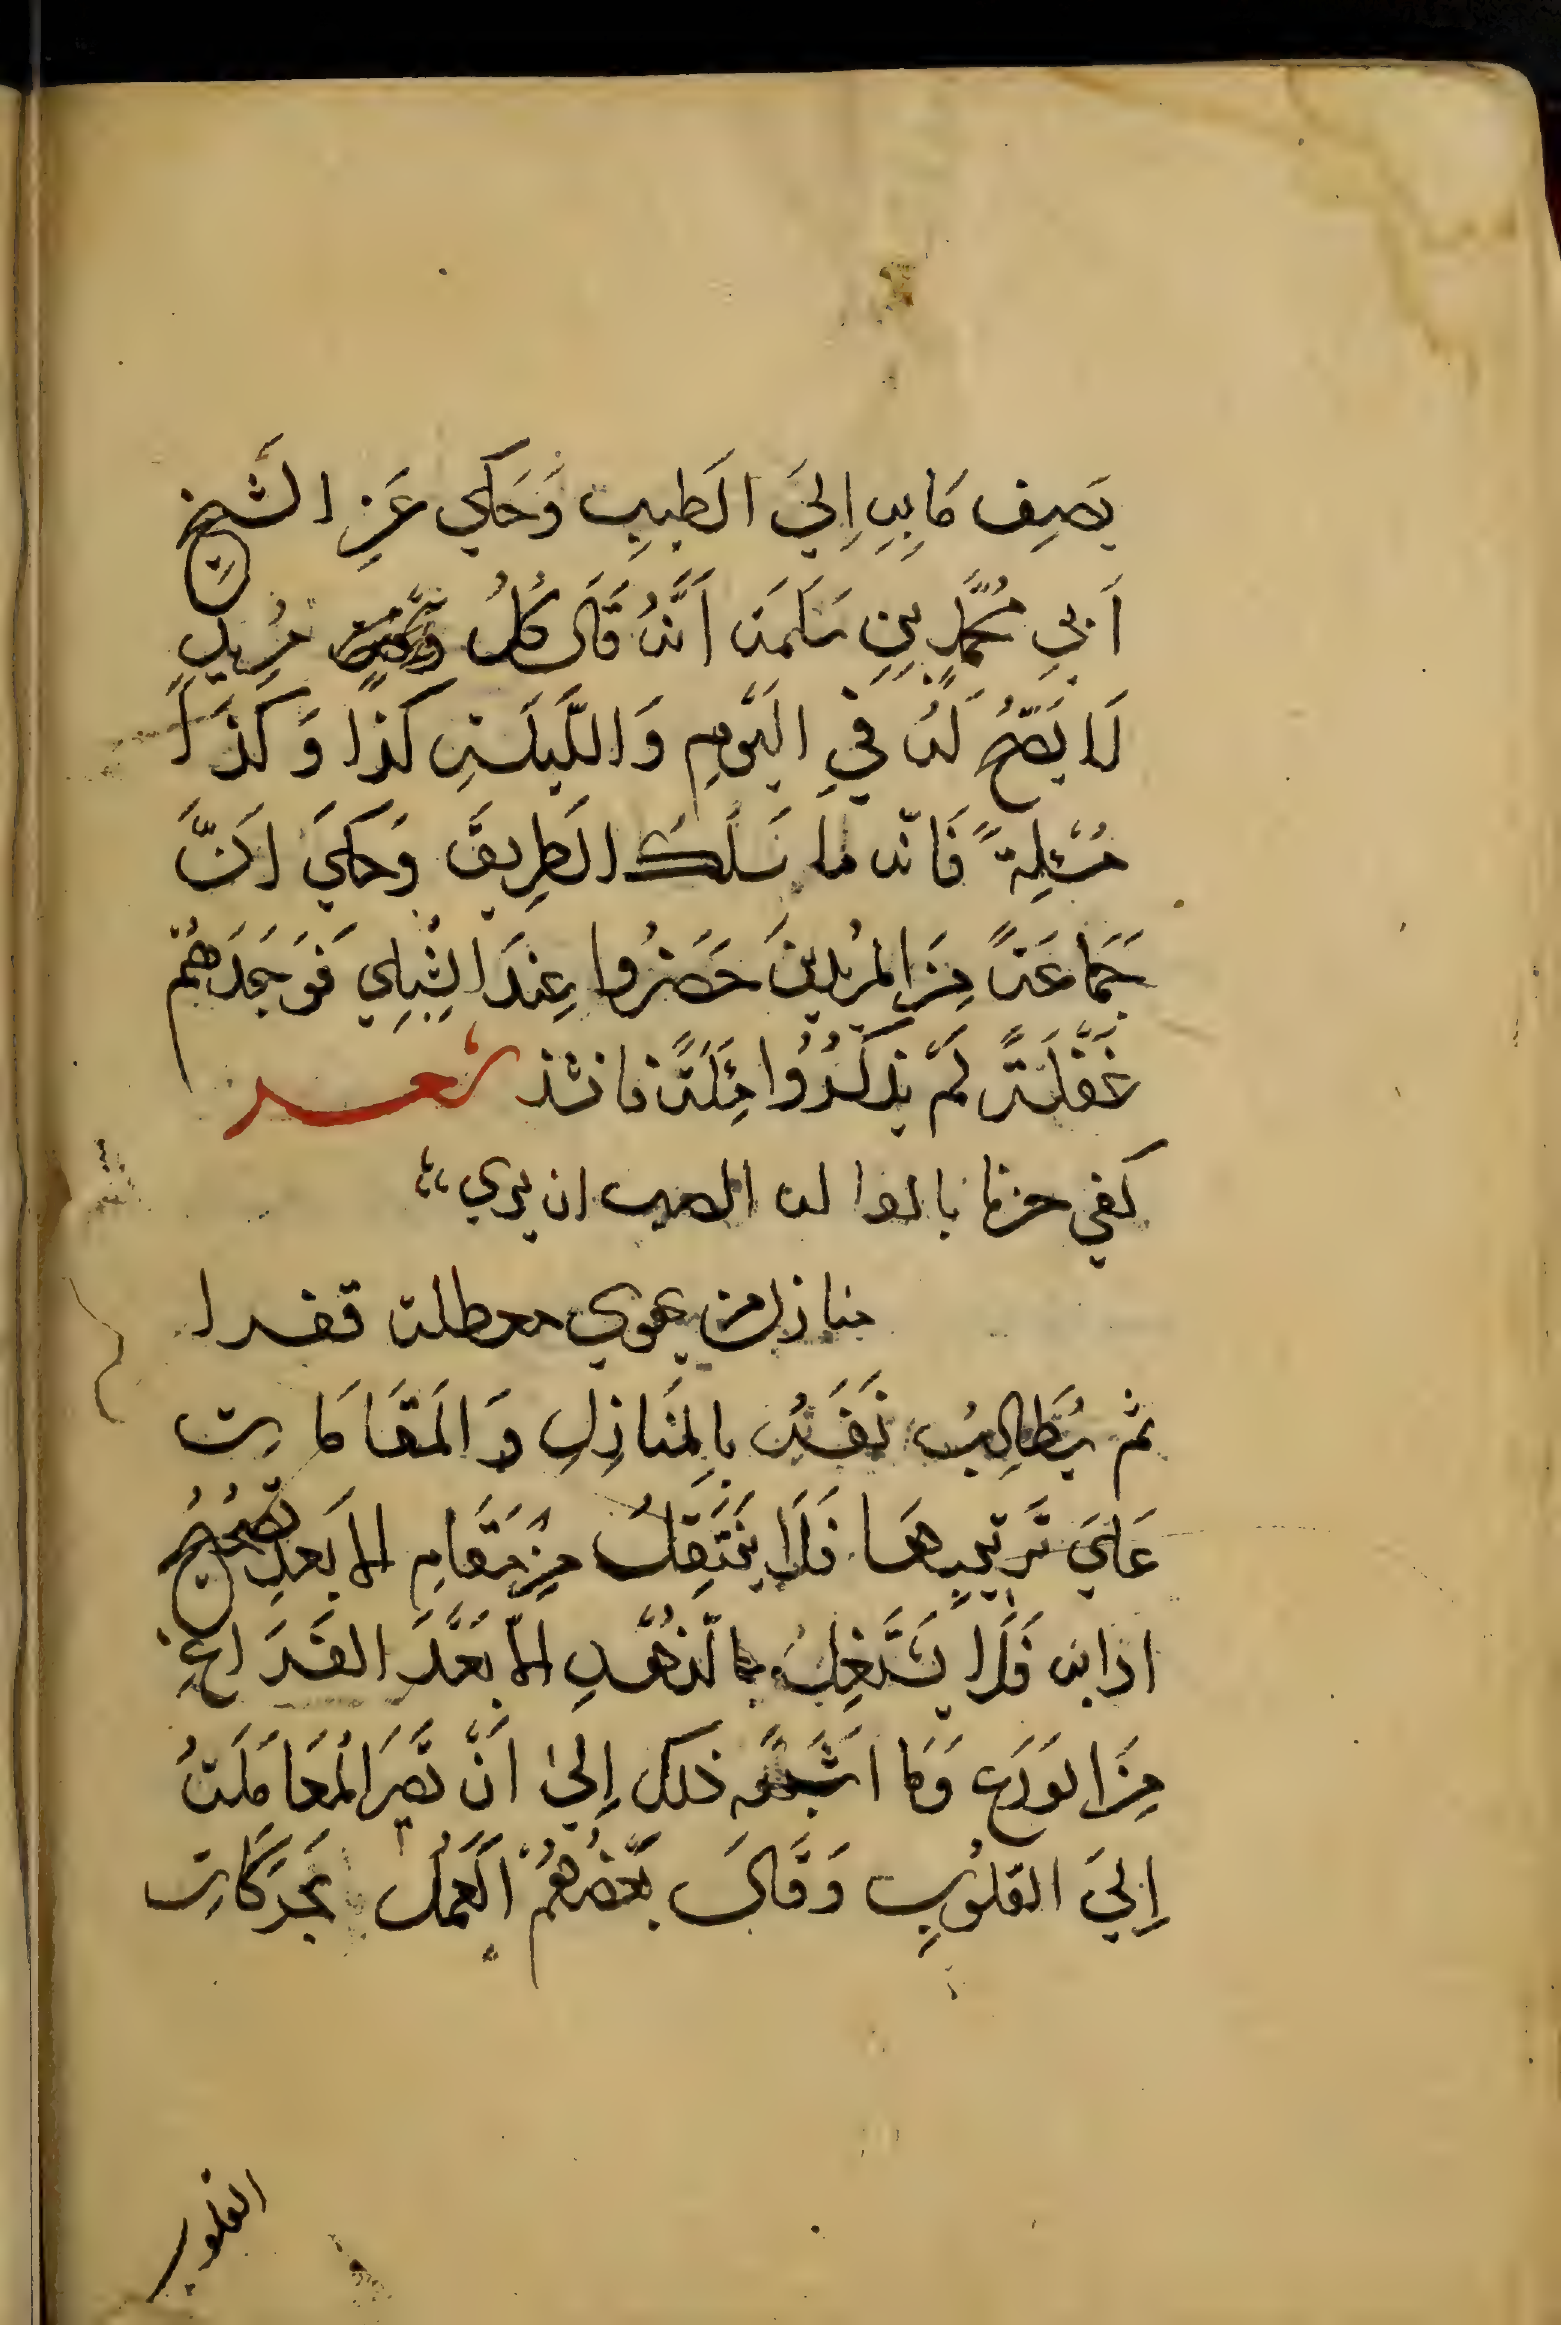 يَصِف مَا بِهِ اِلىَ الَطبيبِ وَحَكي عَنِ الشَيخ
اَبي مُحَّمَدٍ بنِ سَلَمَه اَنَّهُ قَالَ كُلُ مُرِيدٍ
لَا يَصَحُ لَهُ فيِ اليَومِ وَالَّليلَةِ كَذا وَكَذَاَ
مسْئلة ً فَانّه ما سَلَكَ الطَرِيقَ وَحَكيَ انَّ
جَمَاعَةً مِنَ المُريدينَ حَضَرُوا عِندَ الشِبِلي فَوَجَدَهُم
غَفْلَةً لَم يَذكُرُوا مَئلَةً فانشذ شعر
كفي حزنا بالوا له الصب ان يري
منازل من يهوي معطلة قفرا
ثم يُطَالِبُ نَفَسَهُ بالمَنَازِلِ وَالمَقَامَاتِ
عَلىَ تَرتيبِهَا فَلَا يَنتَقِلُ مِن مَقَامٍ الا بَعدِ تصُحيحُ
ادابه فَلَا يَشتَغِلُ بالزهُدِ الّا بَعْدَ الفَرَاغِ
مِنَ الوَرَعِ وَمَا اشَبَهَ ذلك اِلىٰ اَنْ تَصيَر المُعَامَلَةُ
اِلىَ القلوُبِ وَقَالَ بَعضُهُمْ اَلعَمَلُ بحَرَكَاتِ
القلوب